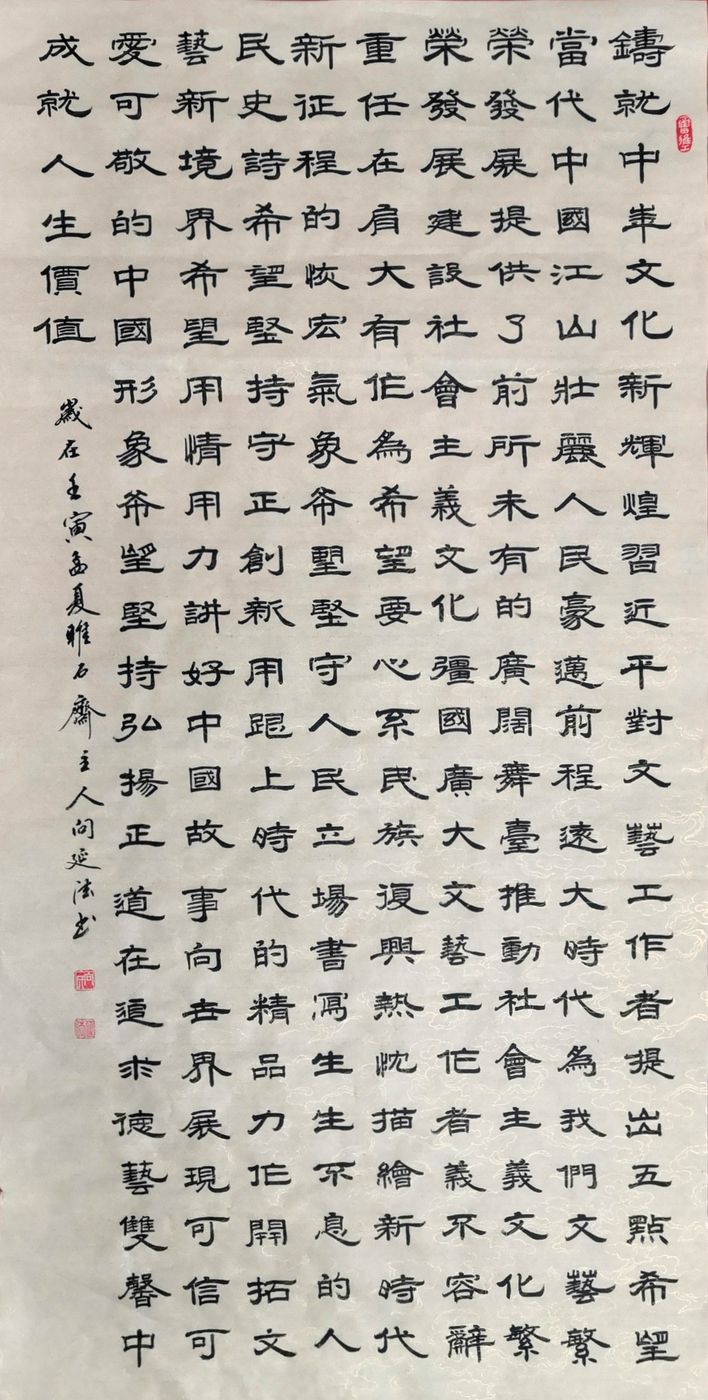 鑄就中華文化新輝煌習近平對文藝工作者提出五點希望
當代中國江山壯麗人民豪邁前程遠大時代為我們文藝繁
榮發展提供了前所未有的廣闊舞臺推動社會主義文化繁
榮發展建設社會主義文化彊國廣大文藝工作者義不容辭
重任在肩大有作為希望要心系民族復興熱忱描繪新時代
新征程的恢宏氣象希望堅守人民立場書寫生生不息的人
民史詩希望堅持守正創新用跟上時代的精品力作開拓文
藝新境界希望用情用力講好中國故事向世界展現可信可
愛可敬的中國形象希望堅持弘揚正道在追求德藝雙馨中
成就人生價值
歲在壬寅孟夏睢石齋主人问延法书